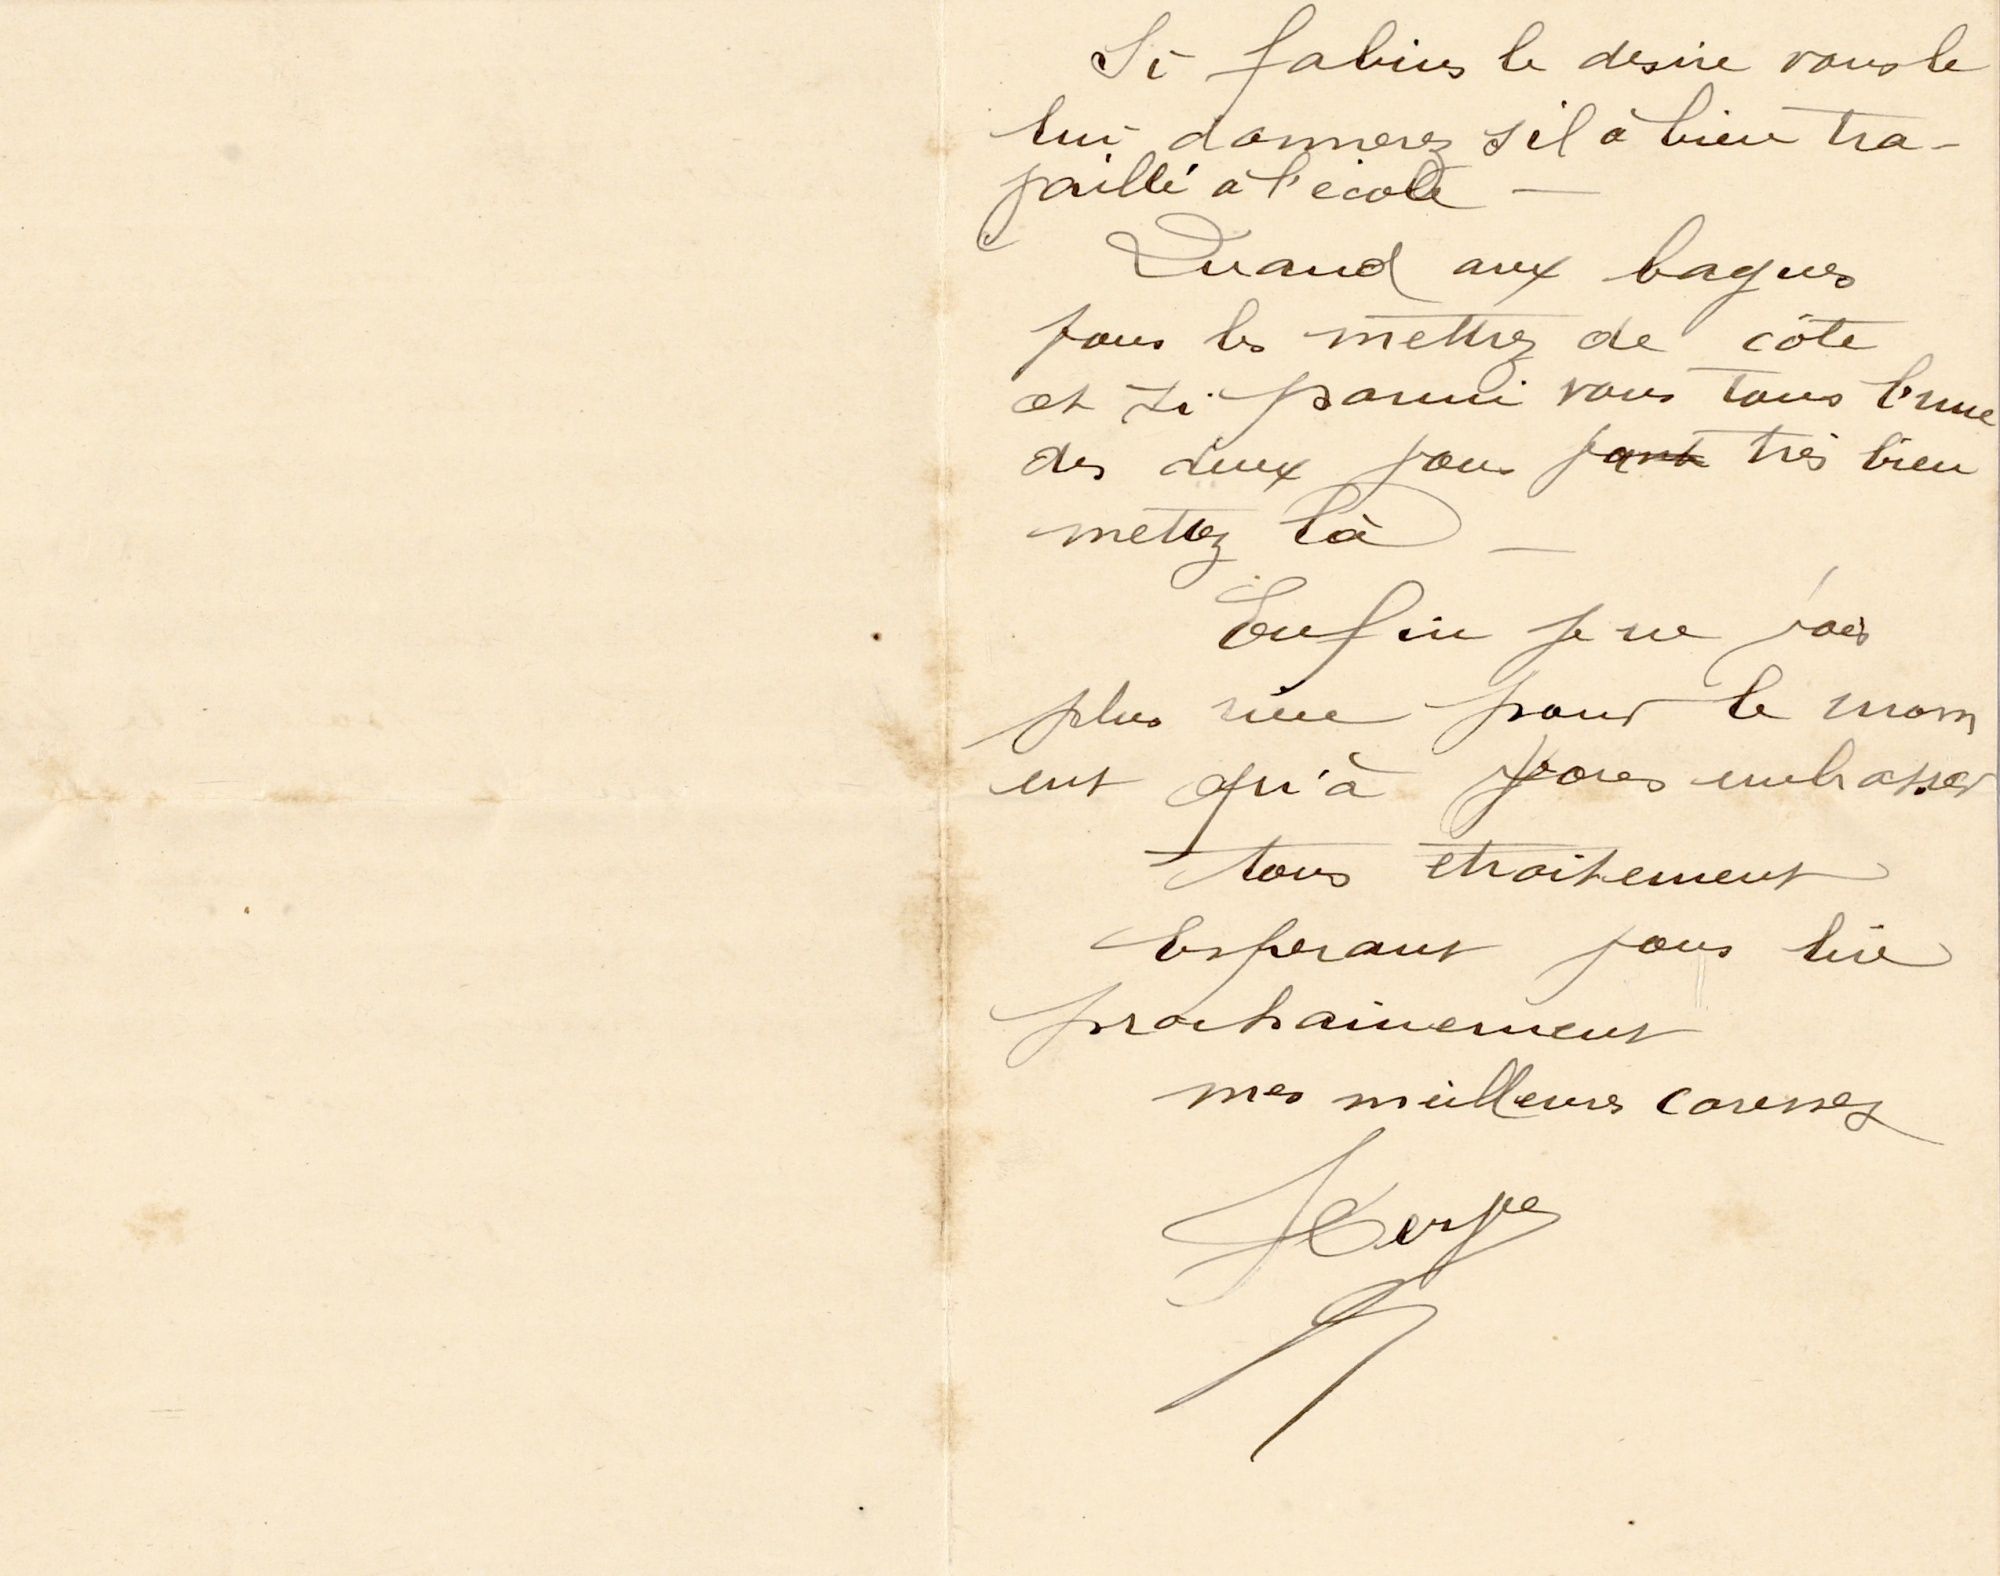 Si fabius le desire vous le
lui donnerez s'il à bien tra-
vaillé à l'ecole —
Quand aux bagues
vous les mettrez de côte
et si parmi vous tous l'une
des deux vous vont très bien
mettez là —
Enfin je ne vois
plus rien pour le mom
ent qu'à vous embrasser
tous etroitement
Esperant vous lire
prochainement
mes meilleures caresses